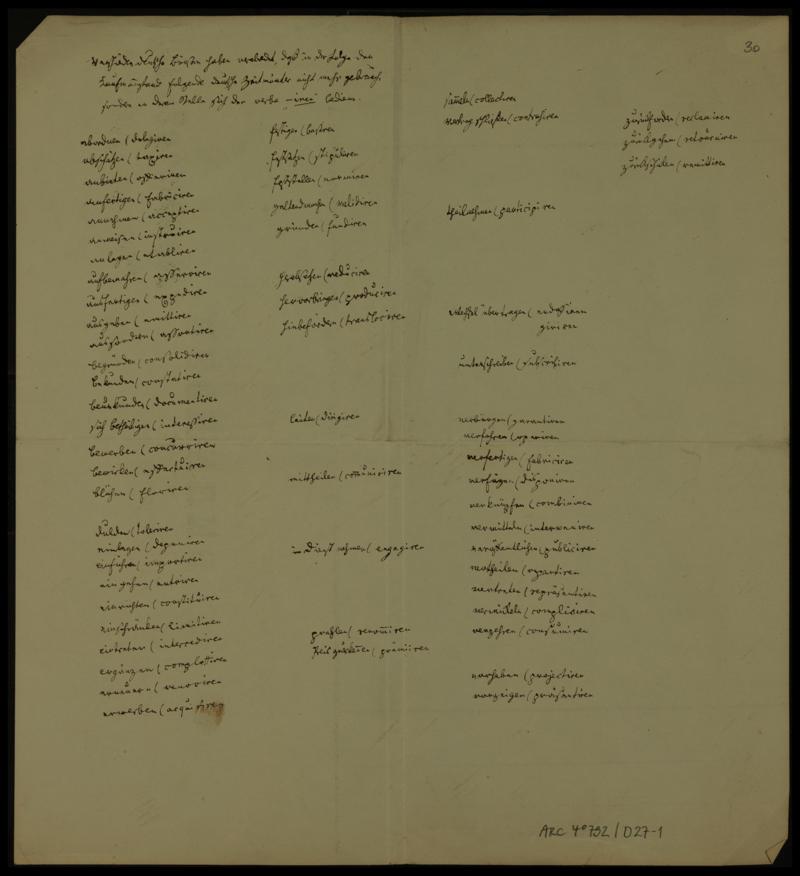 30
Verschiedene deutsche Börsen haben verabredet, daß in der Folge den
Kaufmannsstand folgende deutsche Zeitwörter nicht mehr gebrauch,
sondern an deren Stelle sich der verba -iren bedienen.
abordnen (delegiren
abschätzen (taxiren
anbieten (offeriren
anfertigen (fabriciren
annehmen (acceptiren
anweisen (instruiren
anlegen (etabliren
aufbewahren (asserviren
ausfertigen (expediren
ausgeben (emittiren
aussondern (assortiren
begründen (consolidiren
bekunden (constatiren
beurkunden (documentiren
sich betheiligen (interessiren
bewerben (concurriren
bewirken (effectuiren
blühen (floriren
dulden (toleriren
einlegen (deponiren
einführen (importiren
eingehen (entriren
einrichten (constituiren
einschränken (limitiren
eintreten (intercediren
ergänzen (complettiren
erneuern (renoviren
erwerben (acquiriren
festigen (basiren
festsetzen (stipuliren
feststellen (normiren
geltendmachen (validiren
gründen (fundiren
herabsetzen (reduciren
hervorbringen (produciren
hinbefördern (translociren
leiten (dirigiren
mittheilen (comuniciren
in Dienst nehmen (engagiren
prahlen (renomiren
Preis zuerkennen (prämiiren
sammeln (collectiren
Vertrag schließen (contrahiren
theilnehmen (participiren
Wechsel übertragen (endossiren
giriren
unterschreiben (subscribiren
verbürgen (garantiren
verfahren (operiren
verfertigen (fabriciren
verfügen (disponiren
verknüpfen (combiniren
vermitteln (interveniren
veröffentlichen (publiciren
vertheilen (repartiren
vertreten (repräsentiren
verwickeln (compliciren
verzehren (consumiren
vorhaben (projectiren
vorzeigen (präsentiren
zurückfordern (reclamiren
zurückgehen (retourniren
zurückschicken (remittiren
ARC 4° 792 / D27-1